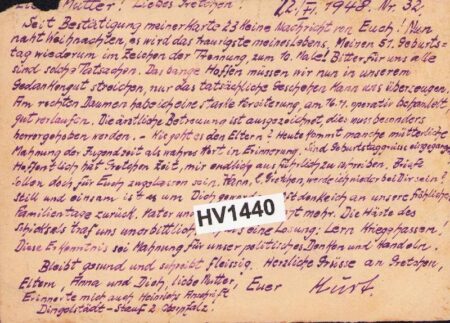 Liebe Mutter! Liebes Gretchen! 22. XI. 1948. Nr. 32.
Seit Bestätigung meiner Karte 23 keine Nachricht von Euch! Nun
naht Weihnachten, es wird das traurigste meines Lebens. Meinen 51. Geburts-
tag wiederum im Zeichen der Trennung, zum 10. Male! Bitter, für uns alle
sind solch Tatsachen. Das bange Hoffen müssen wir nun in unserem
Gedankengut streichen, nur das tatsächliche Geschehen kann uns überzeugen.
Am rechten Daumen habe ich eine starke Vereiterung, am 16.11. operativ behandelt,
gut verlaufen. Die ärztliche Betreuung ist ausgezeichnet, dies muss besonders
hervorgehoben werden. - Wie geht es den Eltern? Heute kommt manche mütterliche
Mahnung der Jugendzeit als wahres Wort in Erinnerung. Sind Geburtstagsgrüsse eingegangen
Hoffentlich hat Gretchen Zeit, mir endlich ausführlich zu schreiben. Briefe
sollen doch für Euch zugelassen sein. Wann, l. Gretchen, werde ich wieder bei Dir sein?
Still und einsam ist es um Dich denke ich an unsere fröhlichen
Familientage zurück. Vater und mehr. Die Härte des
Schicksals traf uns unerbittlich eine Losung: Lern Krieg hassen!
Diese Erkenntnis sei Mahnung für unser politisches Denken und Handeln.
Bleibt gesund und schreibt fleissig. Herzliche Grüsse an Gretchen,
Eltern, Anna und Dich, liebe Mutter, Euer Kurt.
Erinnerte mich auch Heinrichs Anschrift
Dingolstädt Oberpfalz!
HV1440